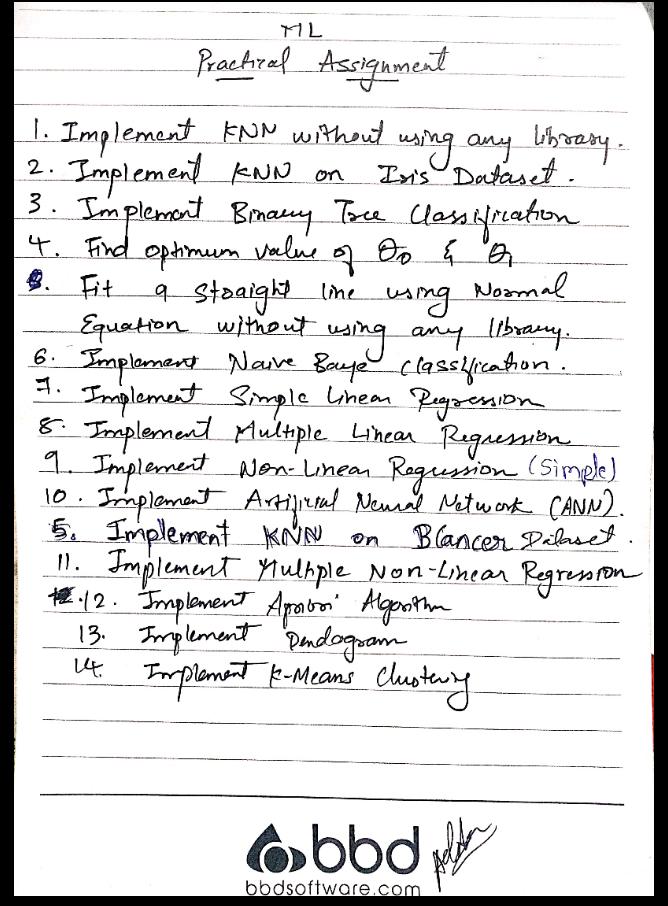 ML
Practical Assignment
1. Implement KNN without using any library.
2. Implement KNN on Iris Dataset.
3. Implement Binary Tree Classification
4. Find optimum value of θ0 & θ1
8. Fit a straight line using Normal
Equation without using any library.
6. Implement Naive Baye Classification.
7. Implement Simple Linear Regression
8. Implement Multiple Linear Regression
9. Implement Non-Linear Regression (Simple)
10. Implement Artificial Neural Network (ANN).
5. Implement KNN on BCancer Dataset.
11. Implement Multiple Non-Linear Regression
12. Implement Apriori Algorithm
13. Implement Dendogram
14. Implement K-Means Clustering
bbd
bbdsoftware.com